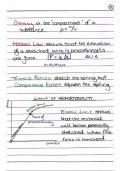 Density is the 'compactness' of a
substance. ρ = m/v
Hooke's Law shows that the extension
of a stretched force is proportional to
the force F = k Δl
Tensile forces stretch the spring, but
Compressive forces squash the spring
LIMIT OF PROPORTIONALITY
Elastic Limit shows
that the material
will become permanently
stretched when the
force is removed